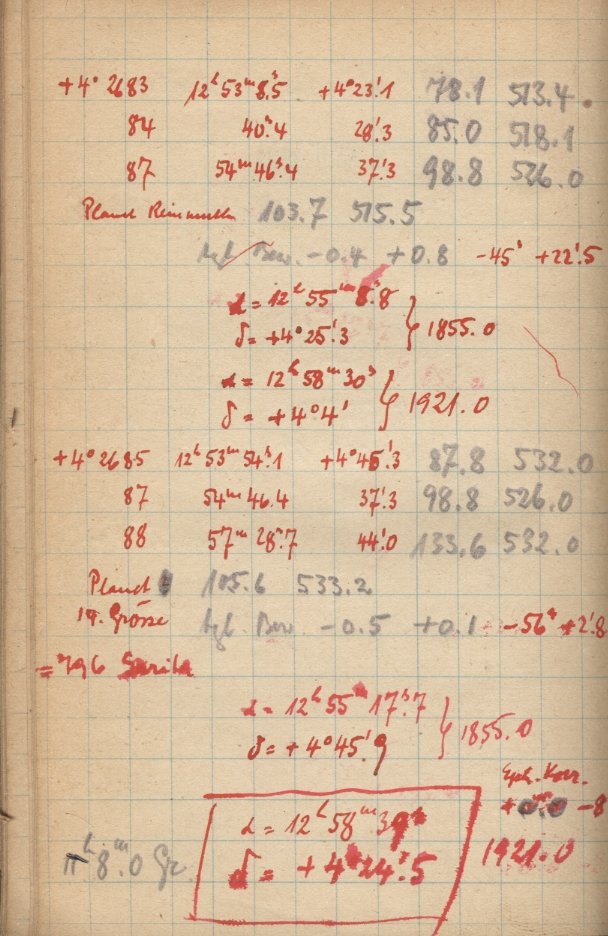 +4° 2683 12ʰ53ᵐ8ˢ.5 +4°23'.1 78.1 513.4
84 40ˢ.4 28'.3 85.0 518.1
87 54ᵐ46ˢ.4 37'.3 98.8 526.0
Planet Reinmuth 103.7 515.5
tgl. Bew. -0.4 +0.8 -45ˢ +22'.5
α = 12ʰ55ᵐ8ˢ.8
1855.0
δ = +4°25'.3
α = 12ʰ58ᵐ30ˢ
1921.0
δ = +4°4'
+4° 2685 12ʰ53ᵐ54ˢ.1 +4°45'.3 87.8 532.0
87 54ᵐ46.4 37'.3 98.8 526.0
88 57ᵐ28ˢ.7 44'.0 133.6 532.0
Planet 105.6 533.2
Grösse tgl. Bew. -0.5 +0.1 -56ˢ +2'.8
= 796 Sarita
α = 12ʰ55ᵐ17ˢ.7
1855.0
δ = +4°45'.9
Eph. Korr.
-8
α = 12ʰ58ᵐ39ˢ
1921.0
δ = +4°24'.5
8ᵐ.0 Gr.